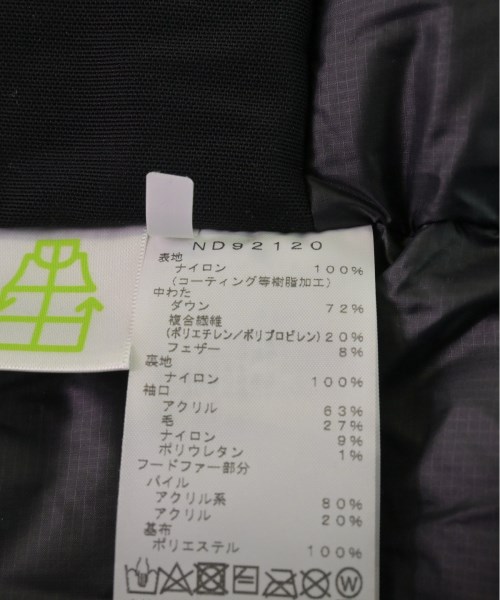 ND92120
表地
ナイロン 100%
(コーティング等樹脂加工)
中わた
ダウン 72%
複合繊維
(ポリエチレン/ポリプロピレン) 20%
フェザー 8%
裏地
ナイロン 100%
袖口
アクリル 63%
毛 27%
ナイロン 9%
ポリウレタン 1%
フードファー部分
パイル
アクリル系 80%
アクリル 20%
基布
ポリエステル 100%
W